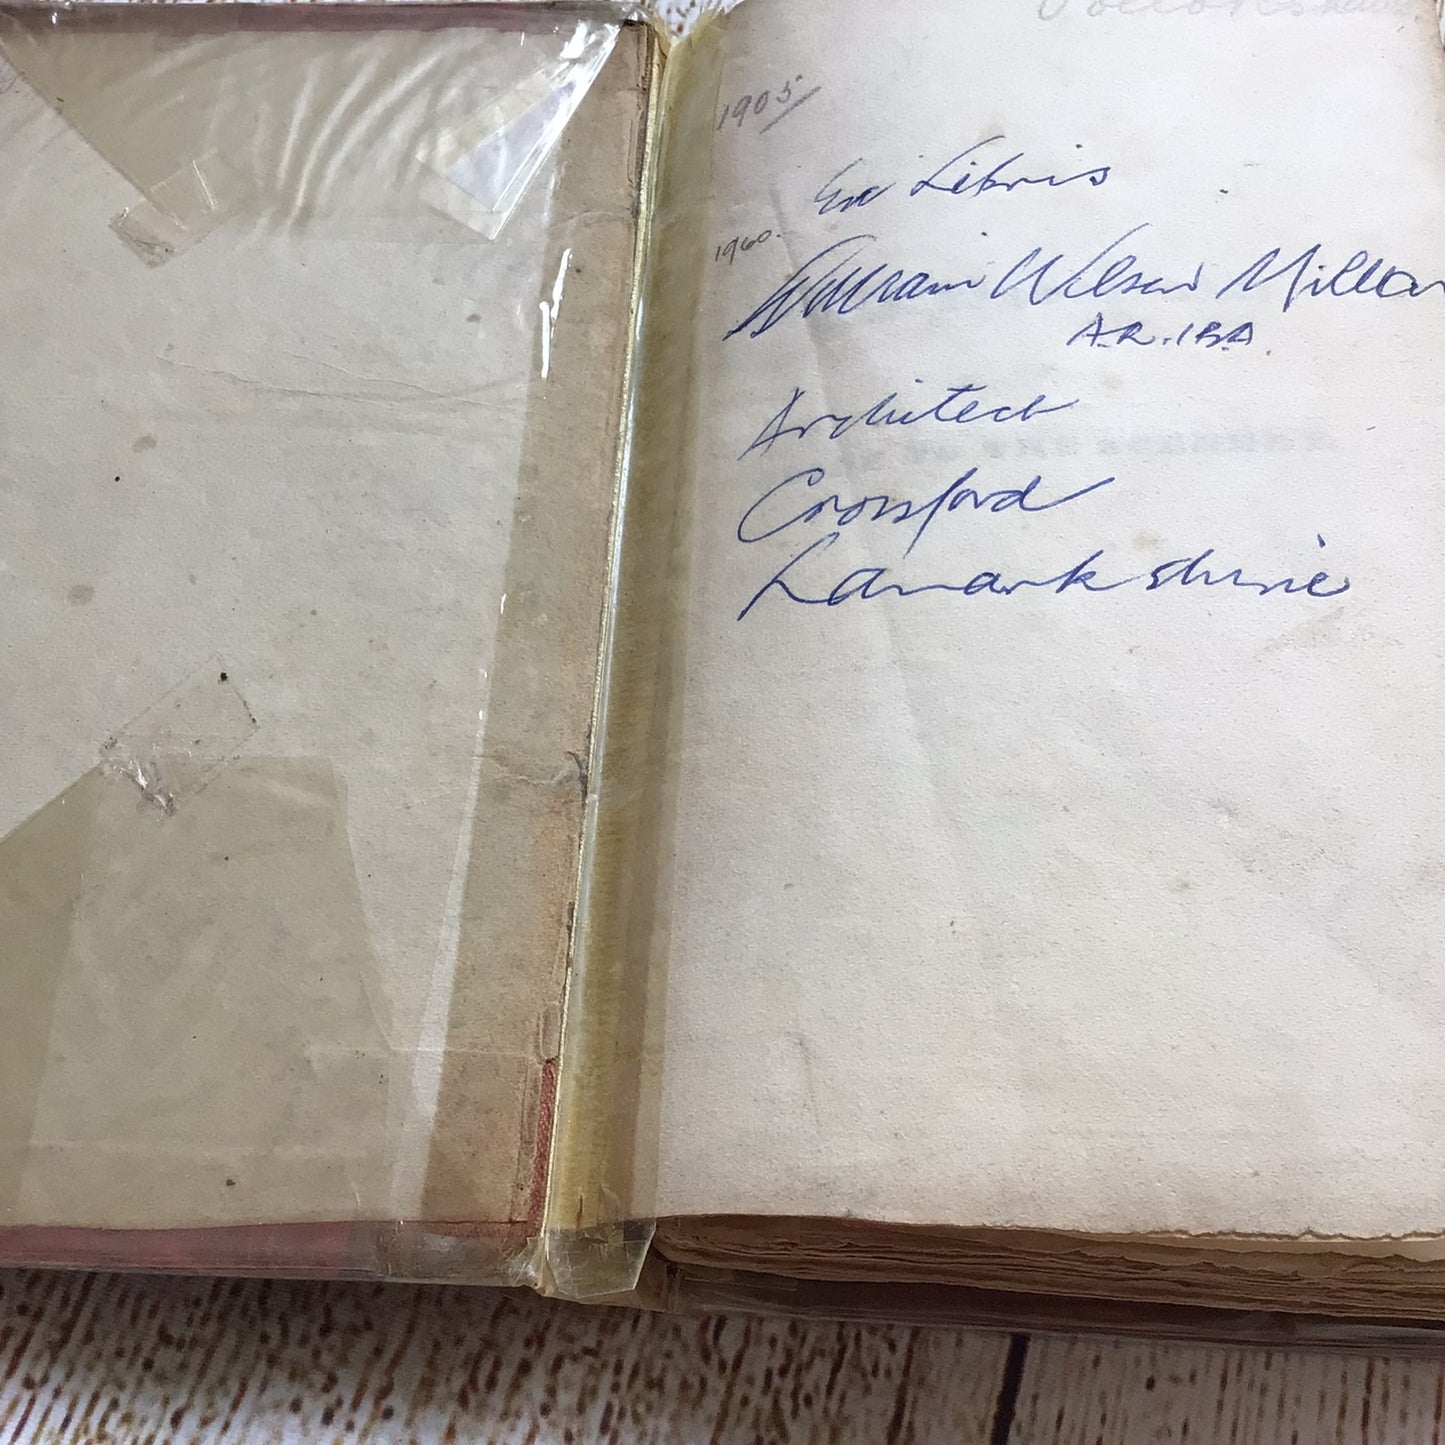 Pollokshaws
1905
Ex Libris
1960.
William Wilson Millar
A.R.I.B.A.
Architect
Crossford
Lanarkshire
TO THE